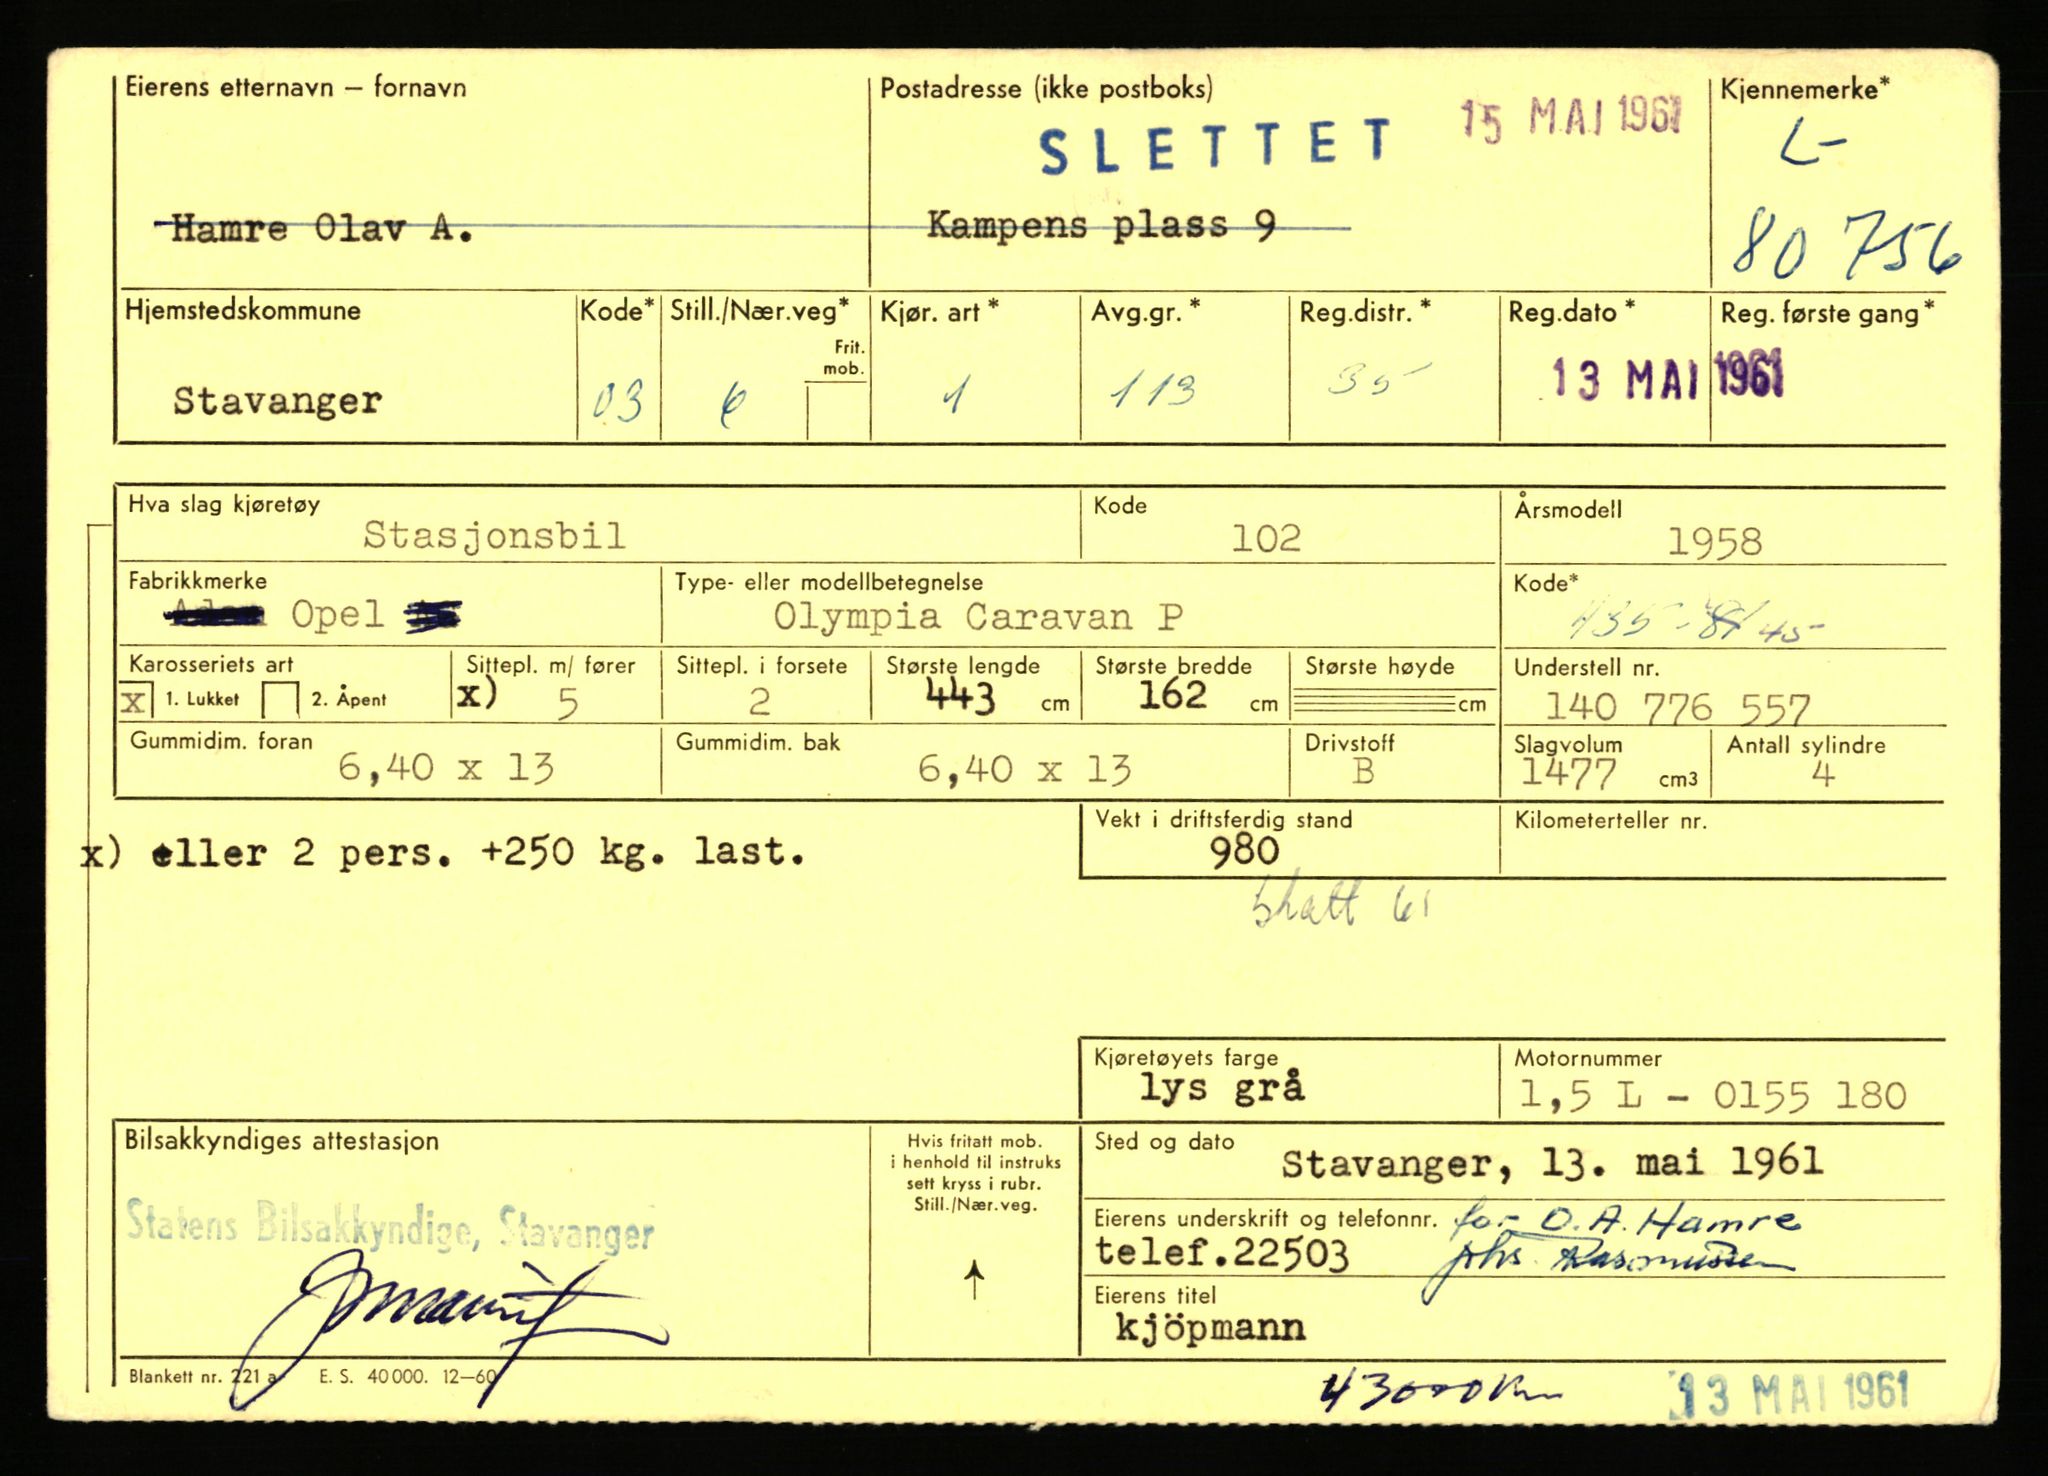 Eierens etternavn – fornavn
Postadresse (ikke postboks)
Kjennemerke*
15 MAI 1961
SLETTET
L-
Hamre Olav A.
Kampens plass 9
80 756
Hjemstedskommune
Kode*
Still./Nær.veg*
Kjør. art*
Avg.gr.*
Reg.distr.*
Reg.dato*
Reg. første gang*
Frit. mob.
Stavanger
03
6
1
113
35
13 MAI 1961
Hva slag kjøretøy
Stasjonsbil
Kode
102
Årsmodell
1958
Fabrikkmerke
Opel
Type- eller modellbetegnelse
Olympia Caravan P
Kode*
45
Karosseriets art
x 1. Lukket 2. Åpent
Sittepl. m/ fører
x) 5
Sittepl. i forsete
2
Største lengde
443 cm
Største bredde
162 cm
Største høyde
cm
Understell nr.
140 776 557
Gummidim. foran
6,40 x 13
Gummidim. bak
6,40 x 13
Drivstoff
B
Slagvolum
1477 cm3
Antall sylindre
4
Vekt i driftsferdig stand
980
Kilometerteller nr.
x) eller 2 pers. +250 kg. last.
skatt 61
Kjøretøyets farge
lys grå
Motornummer
1,5 L - 0155 180
Bilsakkyndiges attestasjon
Statens Bilsakkyndige, Stavanger
Hvis fritatt mob.
i henhold til instruks
sett kryss i rubr.
Still./Nær.veg.
Sted og dato
Stavanger, 13. mai 1961
Eierens underskrift og telefonnr. for O. A. Hamre
telef.22503 Johs. Rasmussen
Eierens titel
kjöpmann
Blankett nr. 221 a E. S. 40 000. 12–60
43000 km
13 MAI 1961